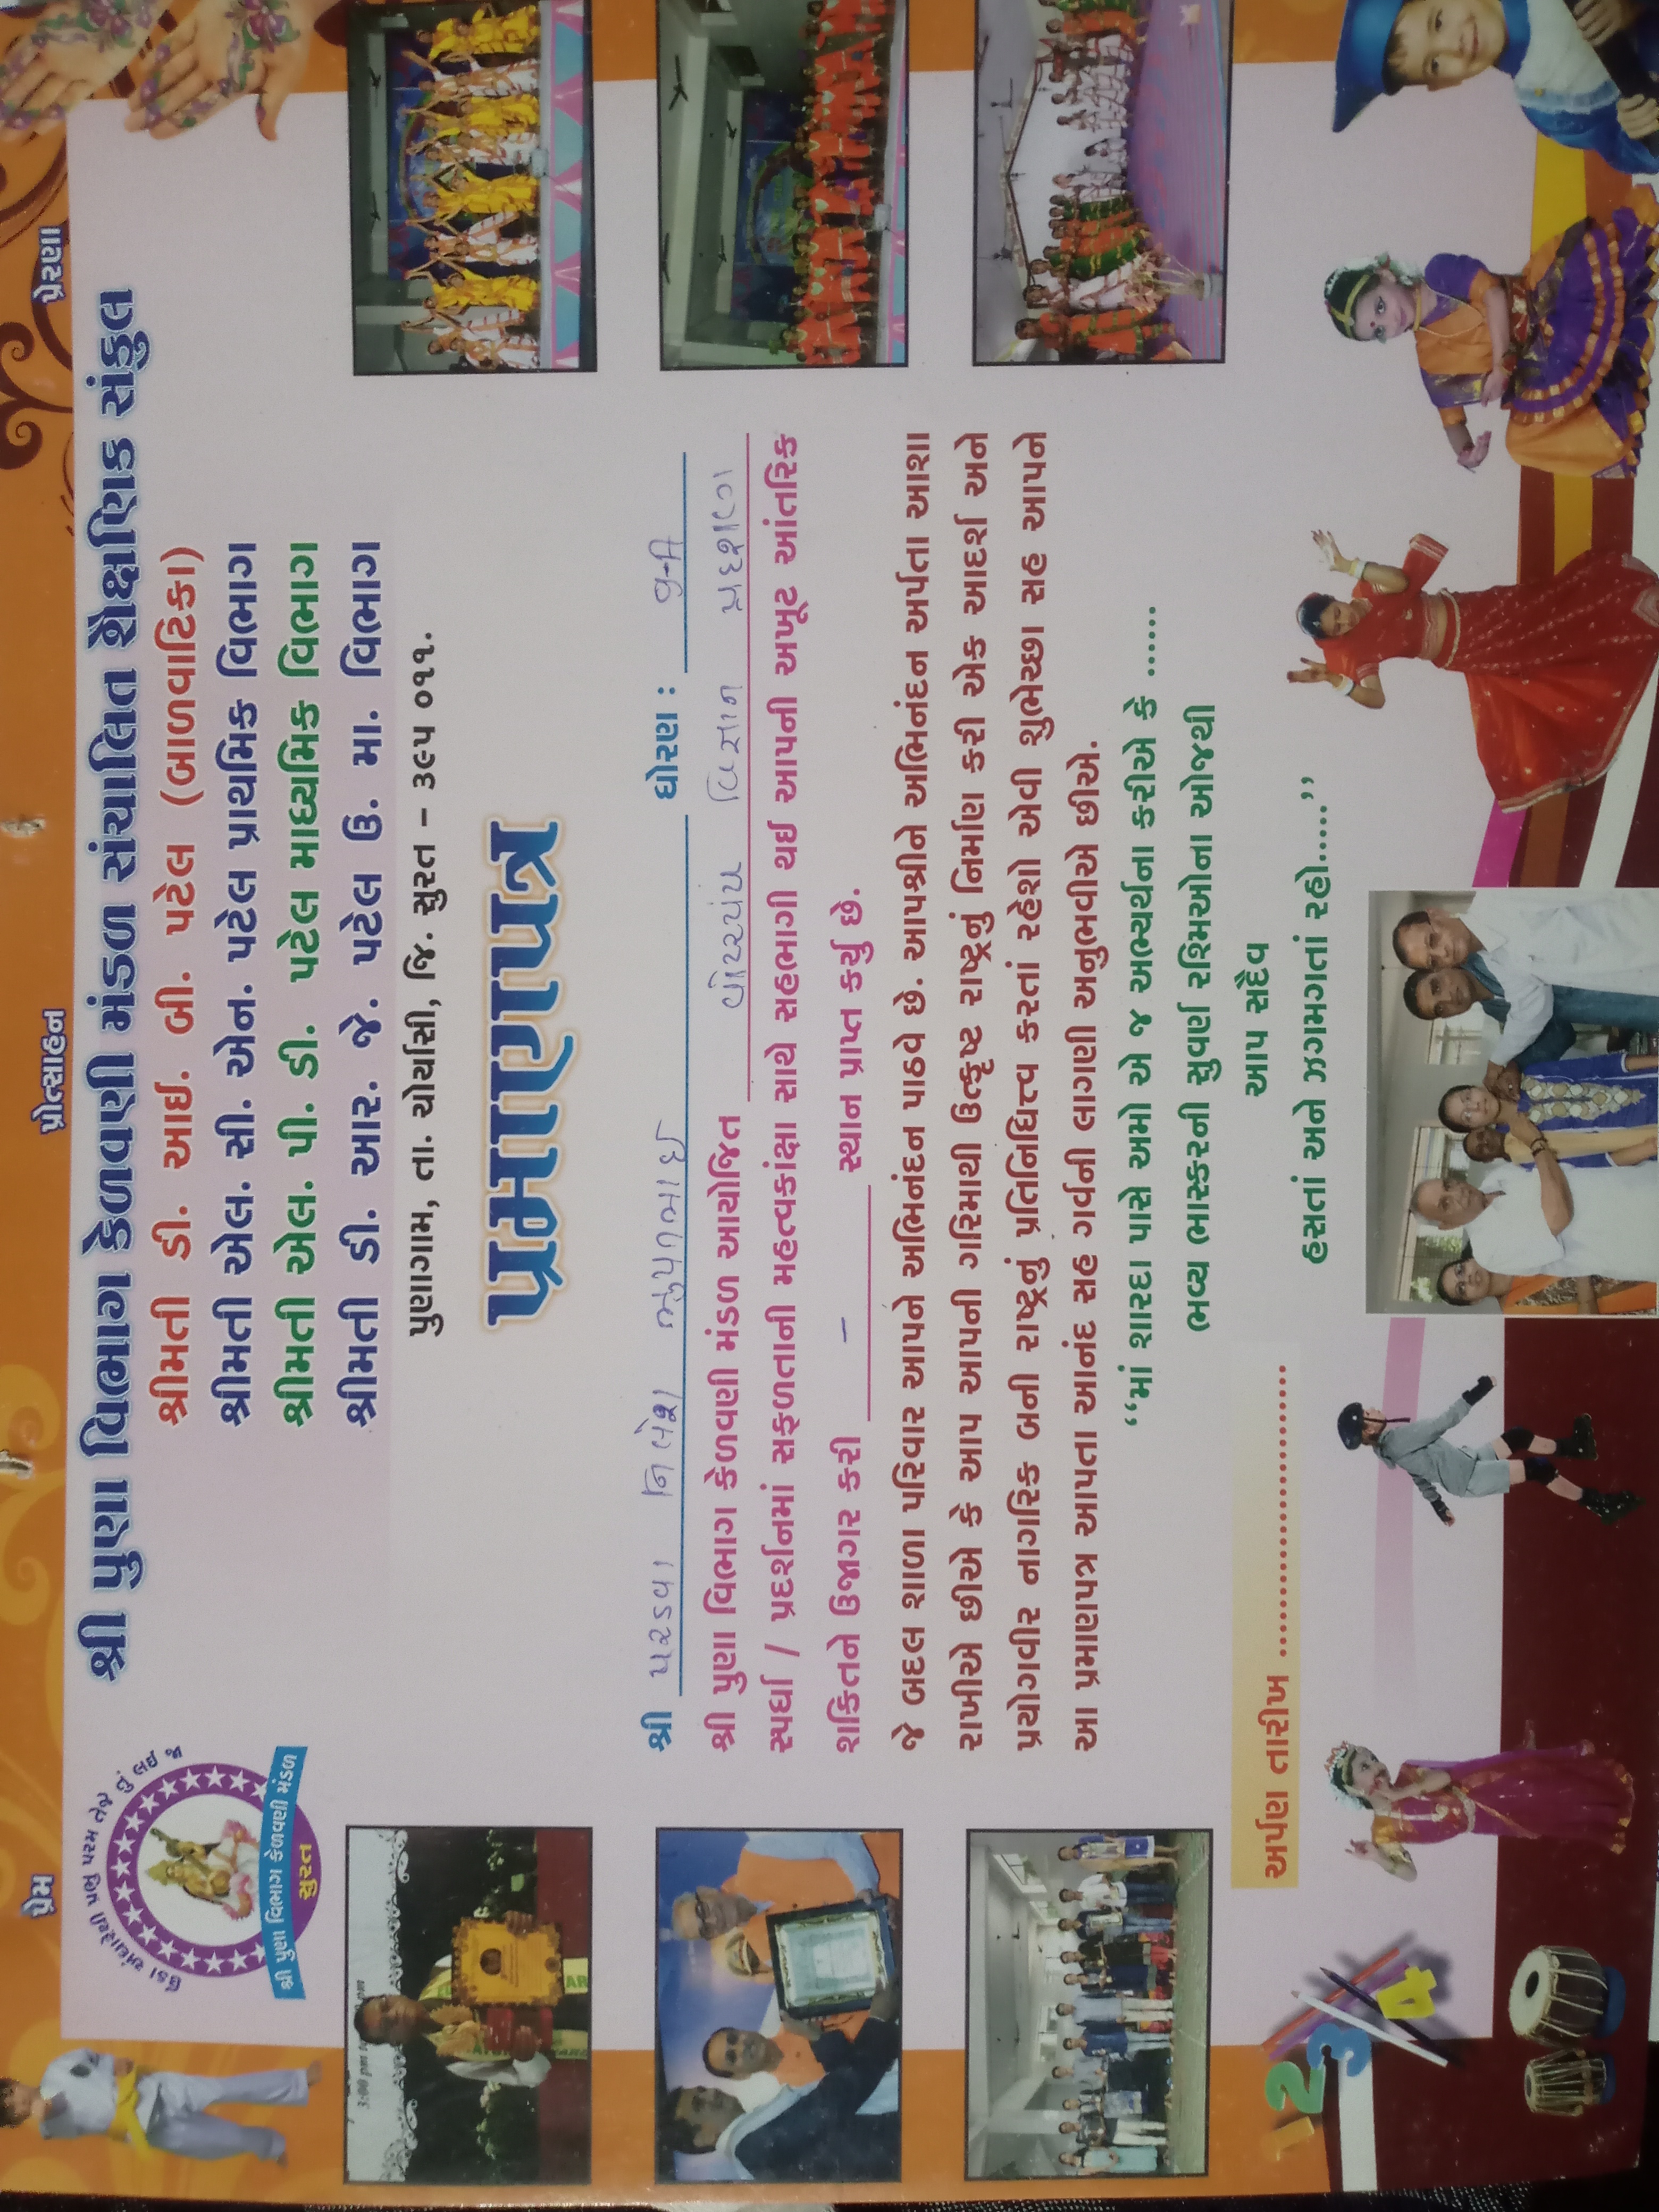 પ્રેમ
પ્રોત્સાહન
પ્રેરણા
ઉંડા અંધારેથી પ્રભુ પરમ તેજે તું લઇ જા
શ્રી પુણા વિભાગ કેળવણી મંડળ
સુરત
શ્રી પુણા વિભાગ કેળવણી મંડળ સંચાલિત શૈક્ષણિક સંકુલ
શ્રીમતી ડી. આઈ. બી. પટેલ (બાળવાટિકા)
શ્રીમતી એલ. સી. એન. પટેલ પ્રાથમિક વિભાગ
શ્રીમતી એલ. પી. ડી. પટેલ માધ્યમિક વિભાગ
શ્રીમતી ડી. આર. જે. પટેલ ઉ. મા. વિભાગ
પુણાગામ, તા. ચોર્યાસી, જિ. સુરત – ૩૯૫ ૦૧૧.
પ્રમાણપત્ર
3:00 pm
શ્રી પરડવા નિલેશ ભુપતભાઇ ધોરણ : 9-A
શ્રી પુણા વિભાગ કેળવણી મંડળ આયોજિત વિજ્ઞાન
સ્પર્ધા / પ્રદર્શનમાં સફળતાની મહત્વકાંક્ષા સાથે સહભાગી થઈ આપની અખૂટ આંતરિક
શકિતને ઉજાગર કરી – સ્થાન પ્રાપ્ત કર્યુ છે.
જે બદલ શાળા પરિવાર આપને અભિનંદન પાઠવે છે. આપશ્રીને અભિનંદન અર્પતા આશા
રાખીએ છીએ કે આપ આપની ગરિમાથી ઉત્કૃષ્ટ રાષ્ટ્રનું નિર્માણ કરી એક આદર્શ અને
પ્રયોગવીર નાગરિક બની રાષ્ટ્રનું પ્રતિનિધિત્ત્વ કરતાં રહેશો એવી શુભેચ્છા સહ આપને
આ પ્રમાણપત્ર આપતા આનંદ સહ ગર્વની લાગણી અનુભવીએ છીએ.
‘‘માં શારદા પાસે અમો એ જ અભ્યર્થના કરીએ કે ......
ભવ્ય ભાસ્કરની સુવર્ણ રશ્મિઓના ઓજથી
આપ સદૈવ
હસતાં અને ઝગમગતાં રહો.....’’
અર્પણ તારીખ ........................
1 2 3 4